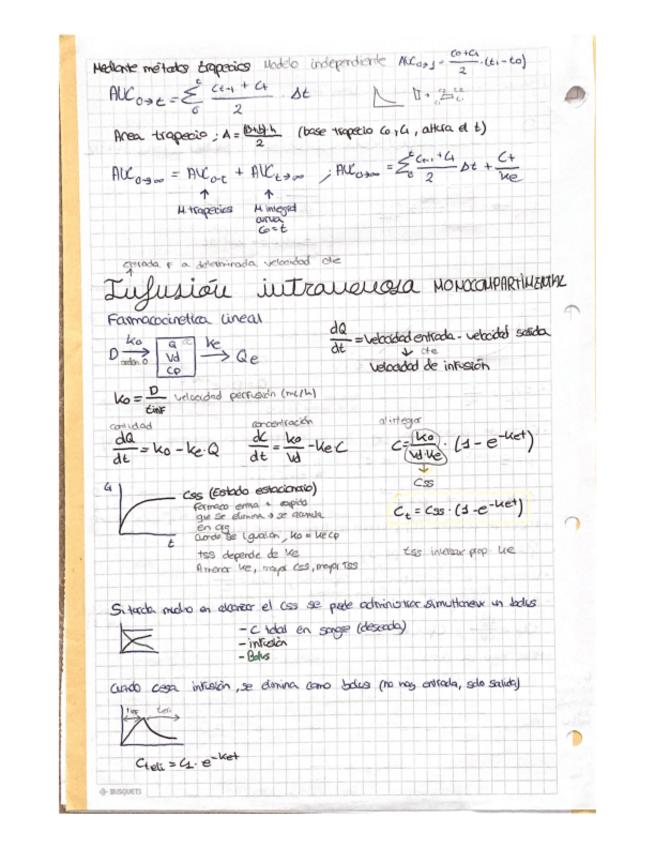 Mediante métodos trapecios Modelo independiente AUC0→1 = (C0+C1)/2 · (t1-t0)
AUC0→t = Σ (Ct-1 + Ct)/2 · Δt
Area trapecio; A = (B+b)·h/2 (base trapecio C0,C1, altura el t)
AUC0→∞ = AUC0-t + AUCt→∞ ; AUC0→∞ = Σ (Cn-1 + C1)/2 Δt + Ct/Ke
↑ ↑
M trapecios M integral
curva
C0=t
a determinada velocidad de
Infusión intravenosa MONOCOMPARTIMENTAL
Farmacocinetica lineal
D Ko → Q Vd Cp Ke → Qe
orden 0
dQ/dt = velocidad entrada - velocidad salida
↓ cte
velocidad de infusión
Ko = D/tinf velocidad perfusión (mL/h)
cantidad concentración al integrar
dQ/dt = Ko - Ke·Q dC/dt = Ko/Vd - Ke C C = Ko/(Vd·Ke) · (1 - e^-Ket)
↓
Css
Ct = Css · (1 - e^-Ket)
Css (Estado estacionario)
Farmaco entra + rapido
que se elimina → se acumula
en org
cuando se igualan, Ko = Ke Cp
t
tss depende de Ke
A menor Ke, mayor Css, mayor tss
tss inversar prop Ke
Si tarda mucho en alcanzar el Css se puede administrar simultanear un bolus
- C total en sangre (deseada)
- infusión
- Bolus
Cuando cesa infusión, se elimina como bolus (no hay entrada, solo salida)
Cteli = C1 · e^-Ket
BUSQUETS